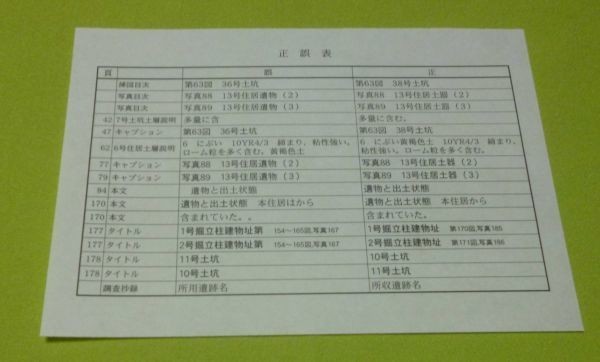 正誤表
頁 誤 正
挿図目次 第63図 36号土坑 第63図 38号土坑
写真目次 写真88 13号住居遺物（2） 写真88 13号住居土器（2）
写真目次 写真89 13号住居遺物（3） 写真89 13号住居土器（3）
42 7号土坑土層説明 多量に含 多量に含む。
47 キャプション 第63図 36号土坑 第63図 38号土坑
62 6号住居土層説明 6 にぶい 10YR4/3 締まり、粘性強い。 6 にぶい黄褐色土 10YR4/3 締まり、
ローム粒を多く含む。黄褐色土 粘性強い。ローム粒を多く含む。
77 キャプション 写真88 13号住居遺物（2） 写真88 13号住居土器（2）
79 キャプション 写真89 13号住居遺物（3） 写真89 13号住居土器（3）
84 本文 遺物と出土状態 遺物と出土状態
170 本文 遺物と出土状態 本住居はから 遺物と出土状態 本住居から
170 本文 含まれていた。。 含まれていた。
177 タイトル 1号掘立柱建物址第 154〜165図,写真167 1号掘立柱建物址 第170図,写真185
177 タイトル 2号掘立柱建物址第 154〜165図,写真167 2号掘立柱建物址 第171図,写真186
178 タイトル 11号土坑 10号土坑
178 タイトル 10号土坑 11号土坑
調査抄録 所用遺跡名 所収遺跡名